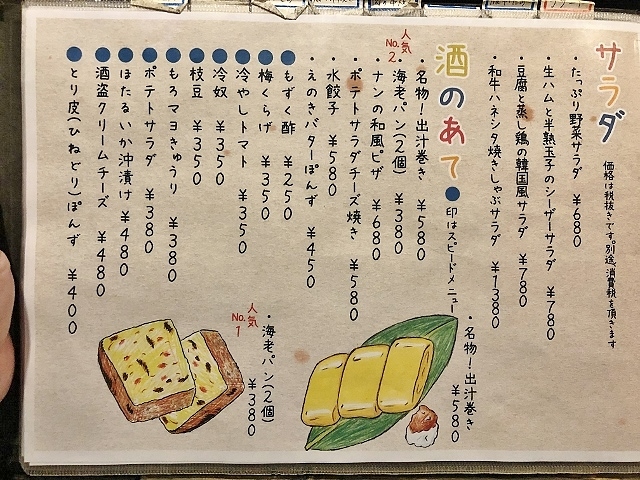 サラダ
価格は税抜きです。別途、消費税を頂きます
・たっぷり野菜サラダ ¥680
・生ハムと半熟玉子のシーザーサラダ ¥780
・豆腐と蒸し鶏の韓国風サラダ ¥780
・和牛ハネシタ焼きしゃぶサラダ ¥1380
酒のあて
●印はスピードメニュー
・名物！出汁巻き ¥580
人気No.2
・海老パン(2個) ¥380
・ナンの和風ピザ ¥680
・ポテトサラダチーズ焼き ¥580
・水餃子 ¥580
・えのきバターぽんず ¥450
●もずく酢 ¥250
●梅くらげ ¥350
●冷やしトマト ¥350
●冷奴 ¥350
●枝豆 ¥350
●もろマヨきゅうり ¥380
●ポテトサラダ ¥380
●ほたるいか沖漬け ¥480
●酒盗クリームチーズ ¥480
●とり皮(ひねどり)ぽんず ¥400
・名物！出汁巻き ¥580
人気No.1
・海老パン(2個) ¥380